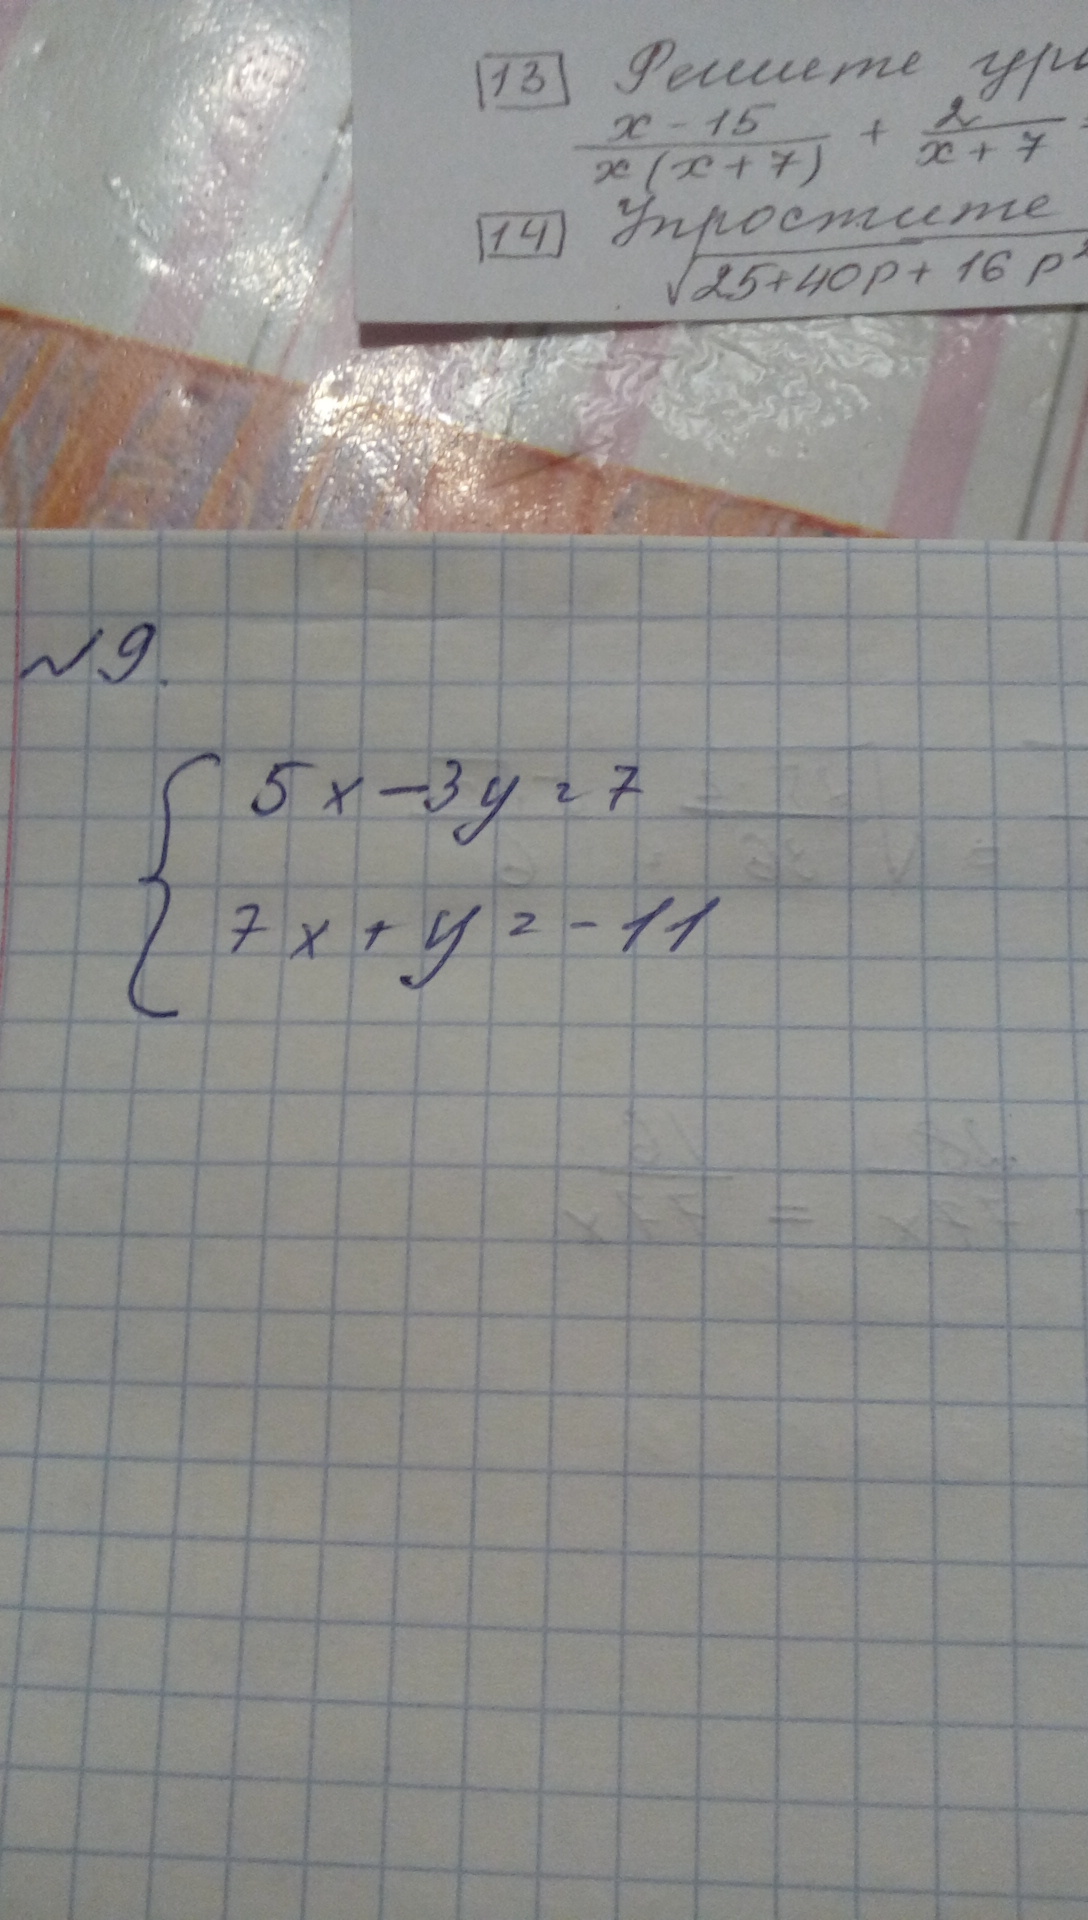 13 Решите
x - 15 / x(x + 7) + 2 / x + 7
14 Упростите
√25+40p+16p²
№9.
{ 5x - 3y = 7
7x + y = -11